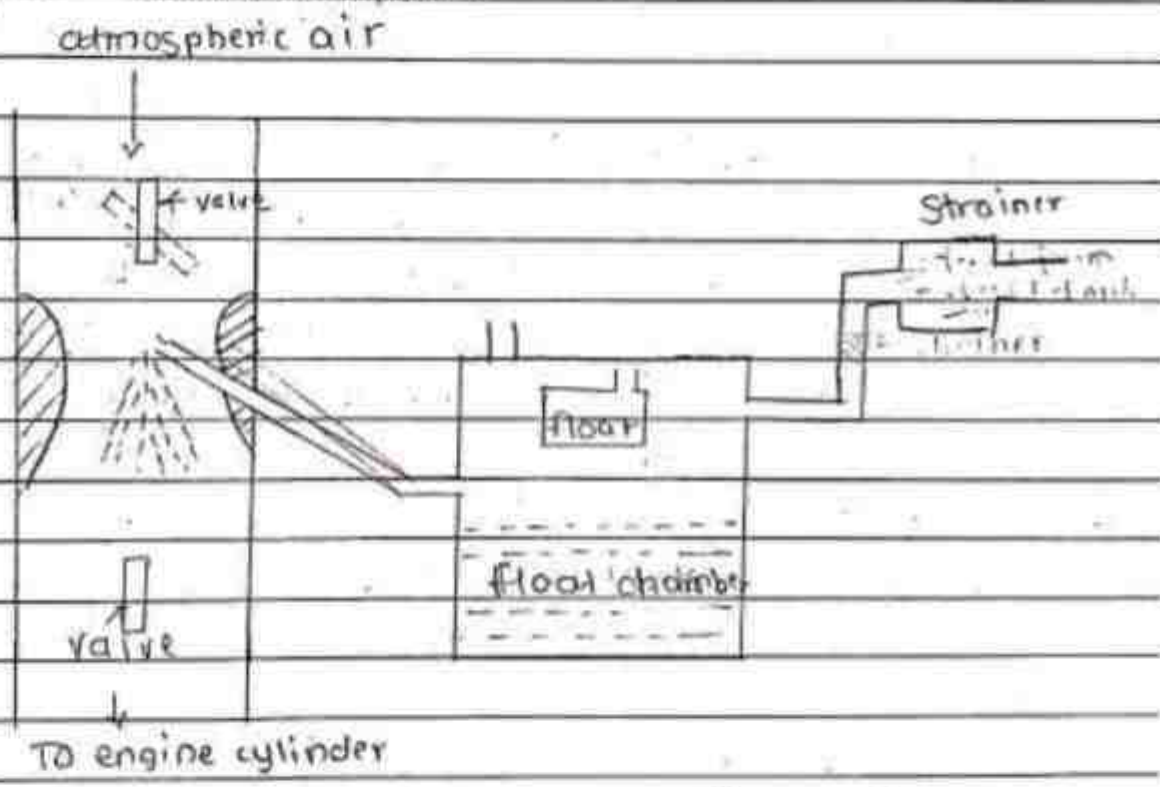 atmospheric air
valve
Strainer
float
float chamber
valve
To engine cylinder